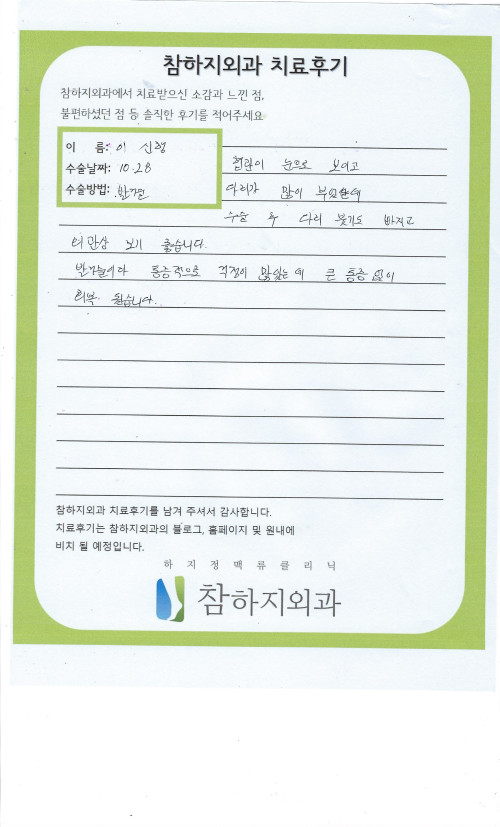 참하지외과 치료후기
참하지외과에서 치료받으신 소감과 느낀 점,
불편하셨던 점 등 솔직한 후기를 적어주세요
이 름: 이 신
수술날짜: 10-28
수술방법:
혈관이 눈으로 보이고
다리가 많이 부었는데
수술 후 다리 붓기도 빠지고
외관상 보기 좋습니다.
통증적으로 걱정이 많았는데 큰 통증 없이
회복 됬습니다.
참하지외과 치료후기를 남겨 주셔서 감사합니다.
치료후기는 참하지외과의 블로그, 홈페이지 및 원내에
비치 될 예정입니다.
하지정맥류클리닉
참하지외과